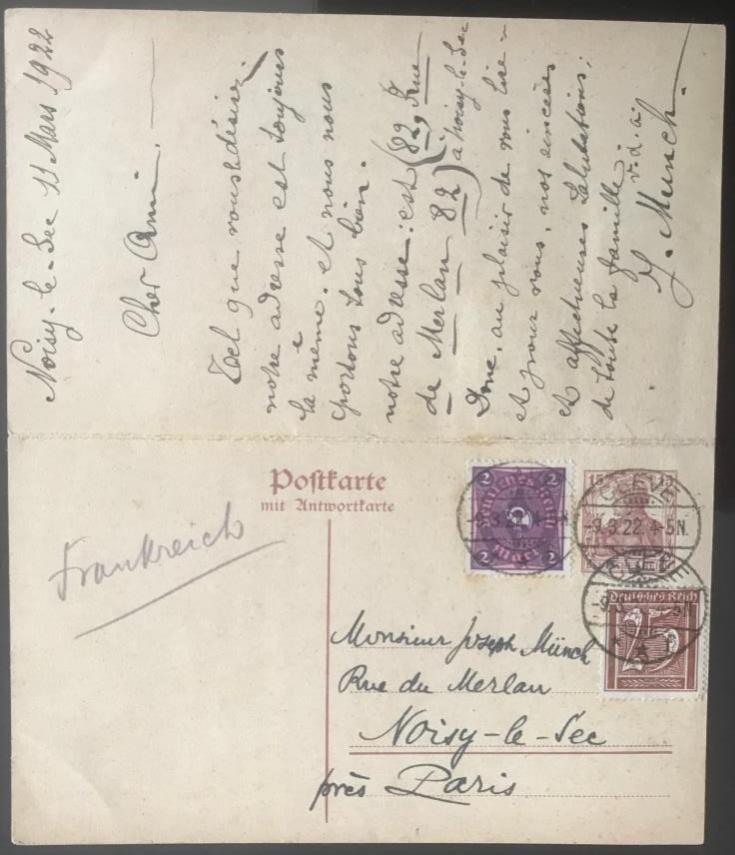 Noisy-le-Sec 11 Mars 1922
Cher Ami. —
Tel que vous désirez
notre adresse est toujours
la même. et nous nous
portons tous bien.
notre adresse: est (82 Rue
de Merlan 82) à Noisy-le-Sec
Donc, au plaisir de vous lire -
et pour vous, nos sincères
et affectueuses salutations;
de toute la famille
v. d. a.
J. Munch. -
Postkarte
mit Antwortkarte
Frankreich
2 2
Deutsches Reich
2
2 Mark 2
15 15
CLEVE
-9.3.22. 4-5N.
CLEVE
Deutsches Reich
75
Monsieur Joseph Münch
Rue du Merlan
Noisy-le-Sec
près Paris